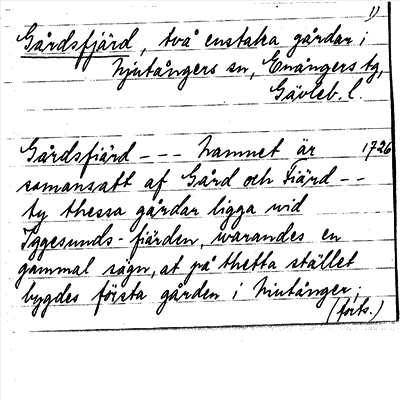 1)
Gårdsfjärd, två enstaka gårdar i
Njutångers sn, Enångers tg,
Gävleb. l.
Gårdsfiärd - - - Namnet är 1726
samansatt af Gård och Fiärd - -
ty thessa gårdar ligga wid
Iggesunds-fiärden, warandes en
gammal sägn, at på thetta stället
bygdes första gården i Niutånger;
(forts.)